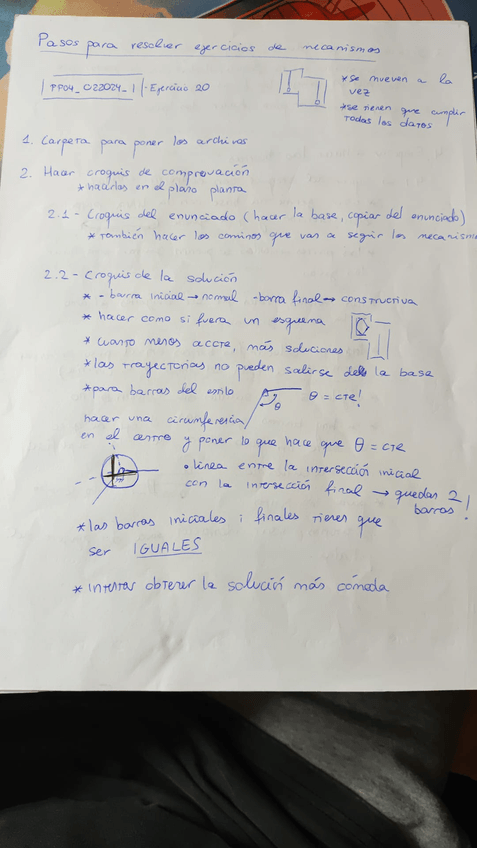 Pasos para resolver ejercicios de mecanismos
| PP04_022024_1 | - Ejercicio 20
* se mueven a la
vez
* se tienen que cumplir
todas los datos
1. Carpeta para poner los archivos
2. Hacer croquis de comprovación
* hacerlos en el plano planta
2.1 - Croquis del enunciado (hacer la base, copiar del enunciado)
* también hacer los caminos que van a seguir los mecanismo
2.2 - Croquis de la solución
* - barra inicial → normal - barra final → constructiva
* hacer como si fuera un esquema
* cuanto menos accte, más soluciones
* las trayectorias no pueden salirse de la base
* para barras del estilo θ θ = cte!
hacer una circumferencia
en el centro y poner lo que hace que θ = cte
• linea entre la intersección inicial
con la intersección final → quedan 2
barras!
* las barras iniciales i finales tienen que
ser IGUALES
* intentar obtener la solución más cómoda